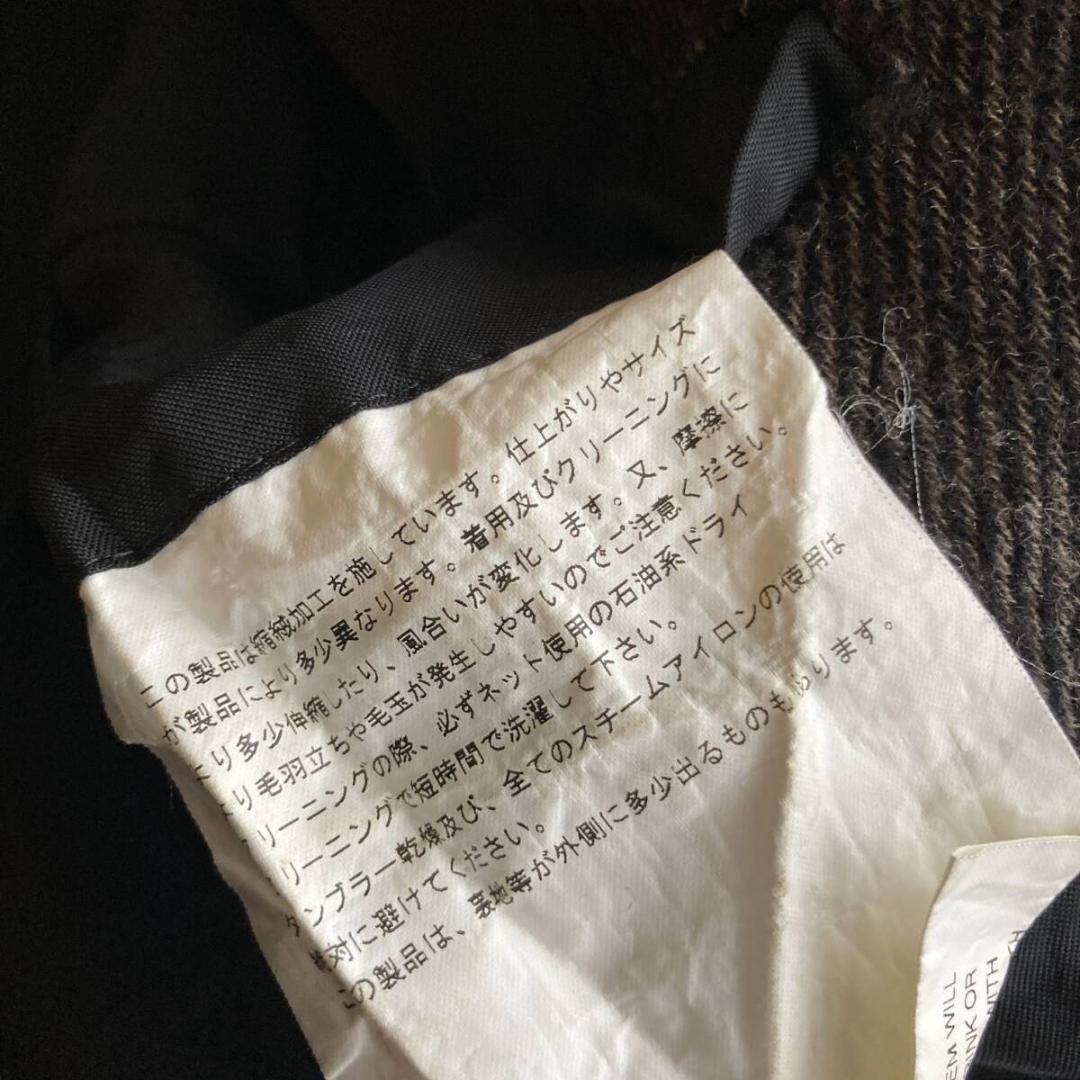 この製品は縮絨加工を施しています。仕上がりやサイズ
が製品により多少異なります。着用及びクリーニングに
より多少伸縮したり、風合いが変化します。又、摩擦に
より毛羽立ちや毛玉が発生しやすいのでご注意ください。
クリーニングの際、必ずネット使用の石油系ドライ
クリーニングで短時間で洗濯して下さい。
タンブラー乾燥及び、全てのスチームアイロンの使用は
絶対に避けてください。
この製品は、裏地等が外側に多少出るものもあります。
EM WILL
INK OR
WITH